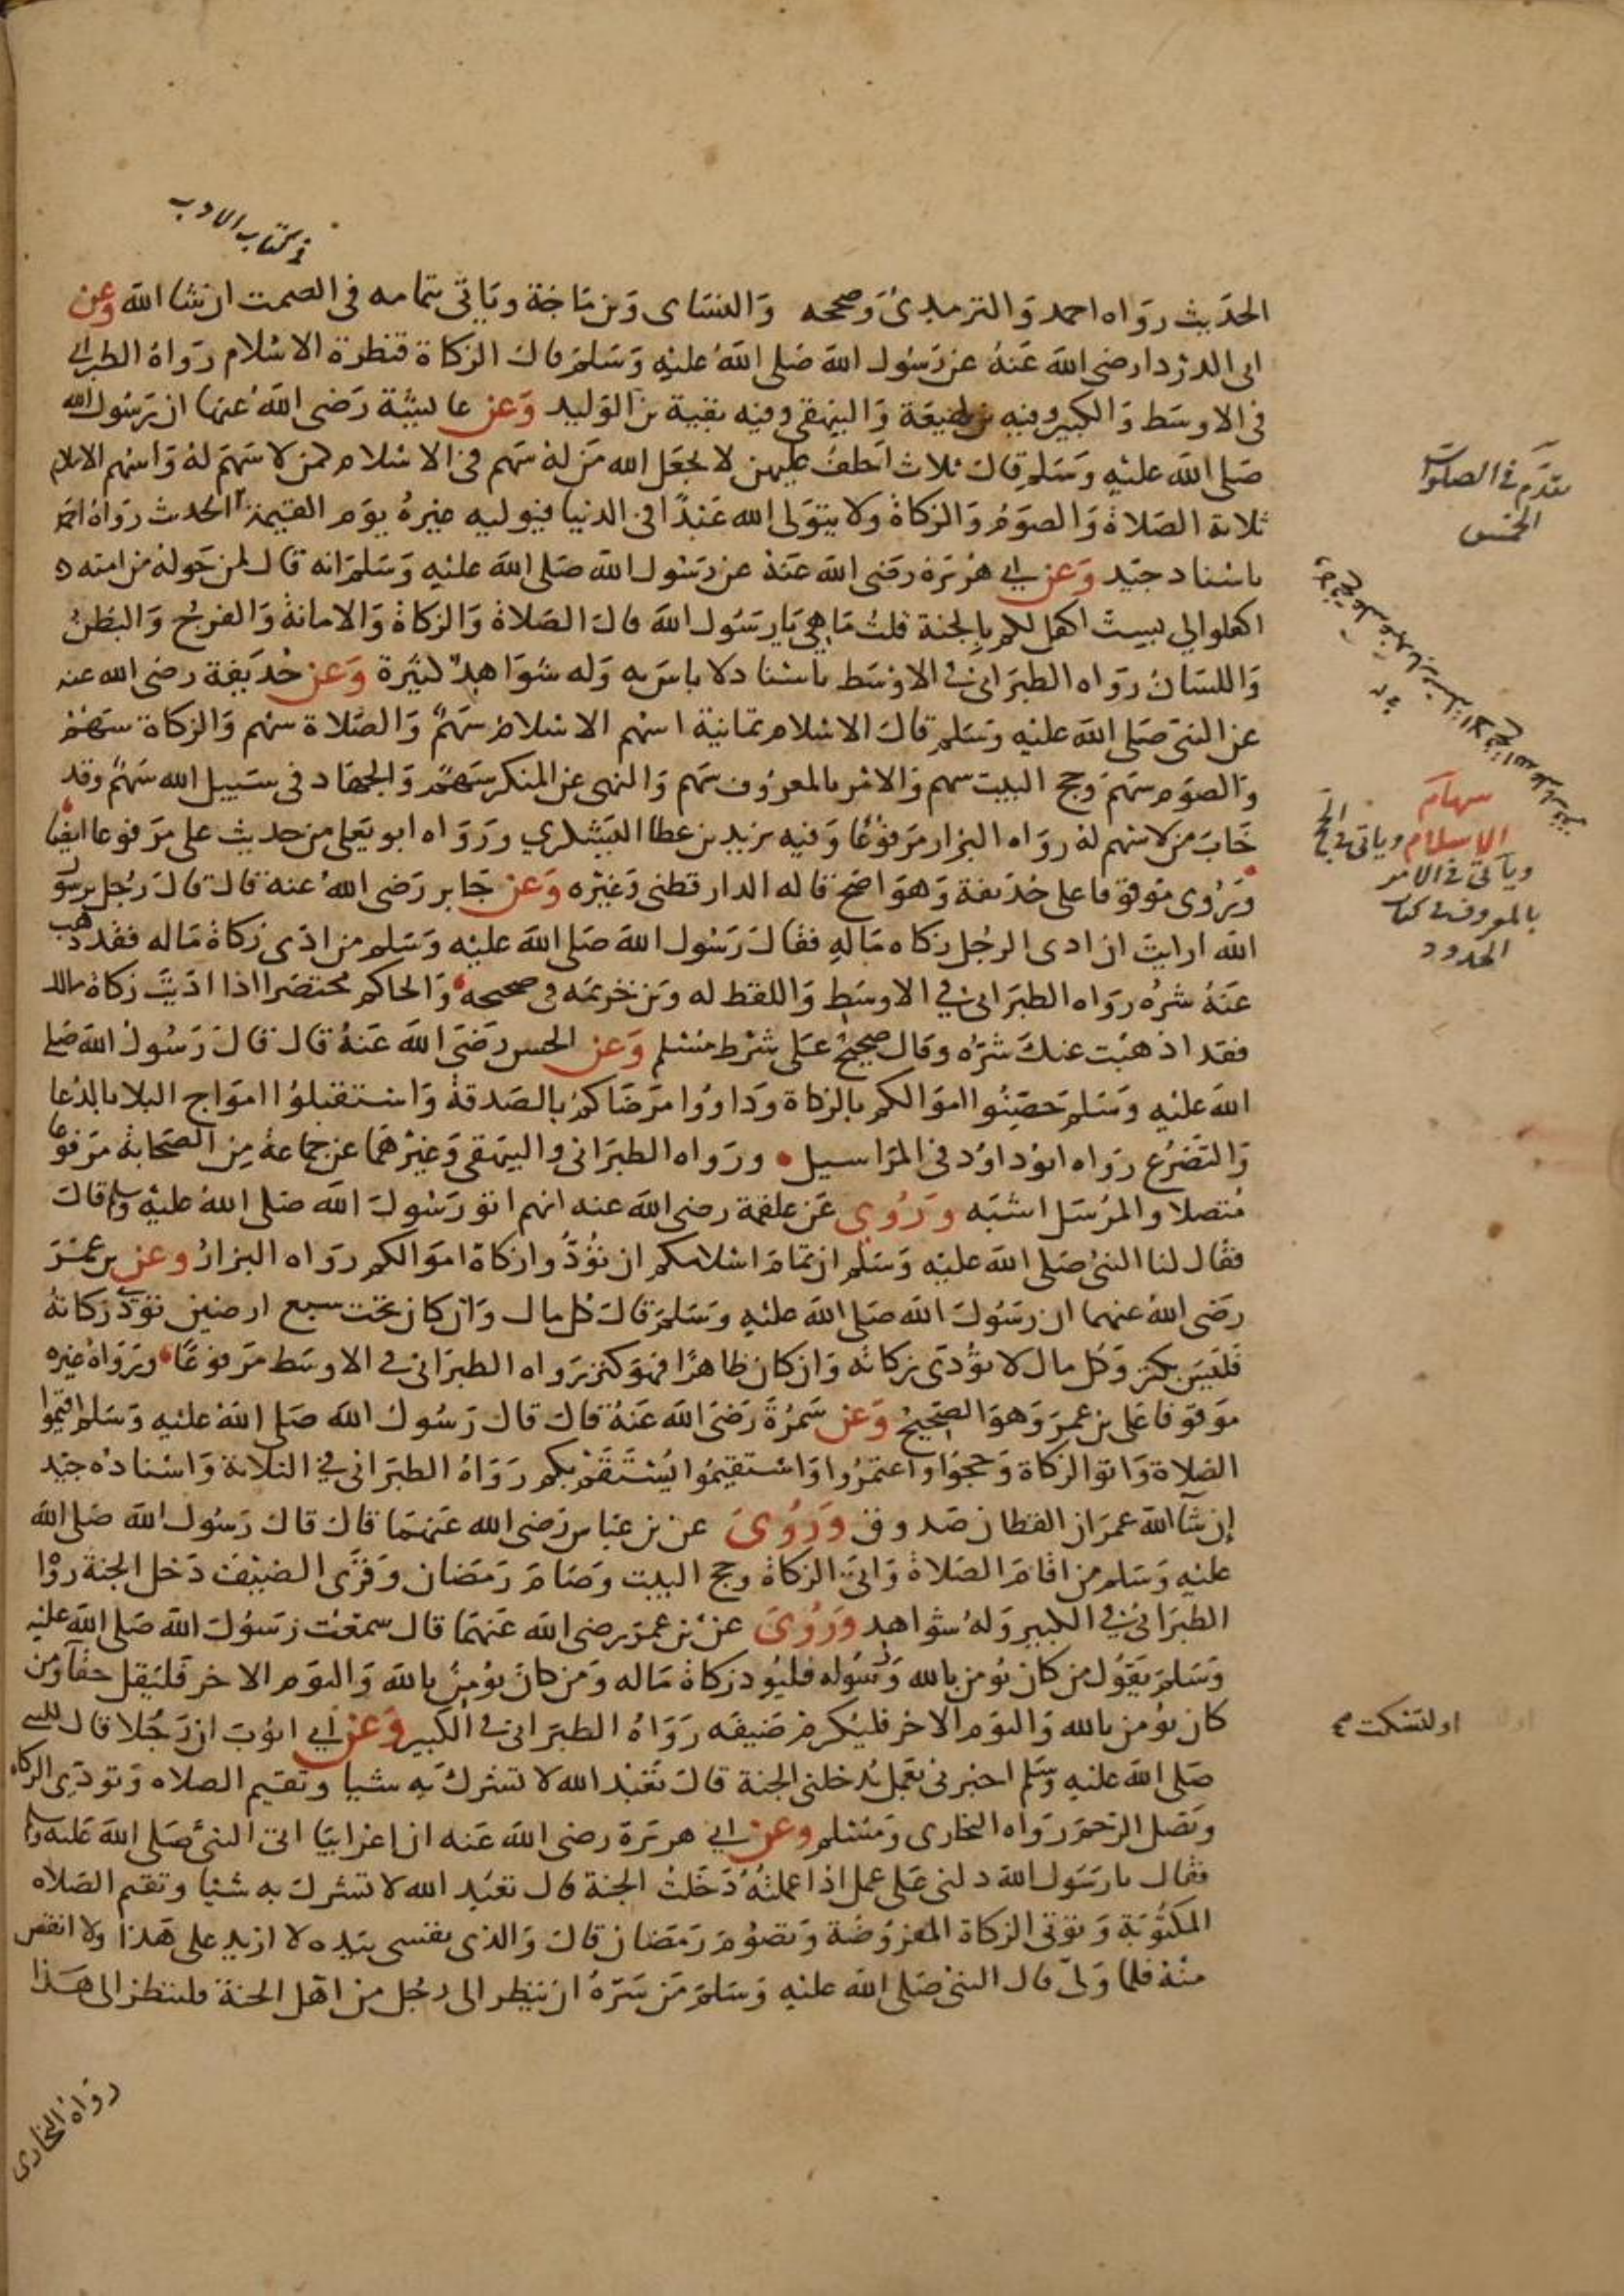 في كتاب الادب
الحديث رواه احمد والترمذي وصححه والنساى وبن ماجة وياتى بتمامه فى الصمت ان شا الله وعن
ابى الدردا رضى الله عنه عن رسول الله صلى الله عليه وسلم قال الزكاة قنطرة الاسلام رواه الطبرانى
فى الاوسط والكبير وفيه بن لهيعة والبيهقى وفيه بقية بن الوليد وعن عايشة رضى الله عنها ان رسول الله
صلى الله عليه وسلم قال ثلاث احلف عليهن لا يجعل الله من له سهم فى الاسلام كمن لا سهم له واسهم الاسلام
ثلاثة الصلاة والصوم والزكاة ولا يتولى الله عبدا فى الدنيا فيوليه غيره يوم القيمة الحديث رواه احمد
باسناد جيد وعن ابي هريرة رضى الله عنه عن رسول الله صلى الله عليه وسلم انه قال لمن حوله من امته
اكفلوا لي بست اكفل لكم بالجنة قلت ما هي يا رسول الله قال الصلاة والزكاة والامانة والفرج والبطن
واللسان رواه الطبرانى فى الاوسط باسناد لا باس به وله شواهد كثيرة وعن حذيفة رضى الله عنه
عن النبى صلى الله عليه وسلم قال الاسلام ثمانية اسهم الاسلام سهم والصلاة سهم والزكاة سهم
والصوم سهم وحج البيت سهم والامر بالمعروف سهم والنهى عن المنكر سهم والجهاد فى سبيل الله سهم وقد
خاب من لا سهم له رواه البزار مرفوعا وفيه يزيد بن عطا اليشكري ورواه ابو يعلى من حديث على مرفوعا ايضا
وروى موقوفا على حذيفة وهو اصح قاله الدارقطنى وغيره وعن جابر رضى الله عنه قال قال رجل يرسول
الله ارايت ان ادى الرجل زكاه ماله فقال رسول الله صلى الله عليه وسلم من ادى زكاة ماله فقد ذهب
عنه شره رواه الطبرانى في الاوسط واللفظ له وبن خزيمه فى صحيحه والحاكم مختصرا اذا اديت زكاة مالك
فقد اذهبت عنك شره وقال صحيح على شرط مسلم وعن الحسن رضى الله عنه قال قال رسول الله صلى
الله عليه وسلم حصنوا اموالكم بالزكاة وداووا مرضاكم بالصدقة واستقبلوا امواج البلا بالدعا
والتضرع رواه ابو داود فى المراسيل ورواه الطبرانى والبيهقى وغيرهما عن جماعة من الصحابة مرفوعا
متصلا والمرسل اشبه وروي عن علقمة رضى الله عنه انهم اتو رسول الله صلى الله عليه وسلم قال
فقال لنا النبى صلى الله عليه وسلم ان تمام اسلامكم ان تؤدوا زكاة اموالكم رواه البزار وعن بن عمر
رضى الله عنهما ان رسول الله صلى الله عليه وسلم قال كل مال وان كان تحت سبع ارضين تؤدى زكاته
فليس بكنز وكل مال لا تؤدى زكاته وان كان ظاهرا فهو كنز رواه الطبرانى فى الاوسط مرفوعا ورواه غيره
موقوفا على بن عمر وهو الصحيح وعن سمرة رضى الله عنه قال قال رسول الله صلى الله عليه وسلم اقيموا
الصلاة واتو الزكاة وحجوا واعتمروا واستقيموا يستقم بكم رواه الطبرانى في الثلاثة واسناده جيد
إن شآ الله عمران القطان صدوق وروى عن بن عباس رضى الله عنهما قال قال رسول الله صلى الله
عليه وسلم من اقام الصلاة واتى الزكاة وحج البيت وصام رمضان وقرى الضيف دخل الجنة رواه
الطبرانى فى الكبير وله شواهد وروى عن بن عمر رضى الله عنهما قال سمعت رسول الله صلى الله عليه
وسلم يقول من كان يؤمن بالله ورسوله فليؤد زكاة ماله ومن كان يؤمن بالله واليوم الاخر فليقل حقا ومن
كان يؤمن بالله واليوم الاخر فليكرم ضيفه رواه الطبرانى فى الكبير وعن أبي ايوب ان رجلا قال للنبى
صلى الله عليه وسلم اخبرنى بعمل يدخلنى الجنة قال تعبد الله لا تشرك به شيا وتقيم الصلاه وتودى الزكاه
وتصل الرحم رواه البخارى ومسلم وعن ابي هريرة رضى الله عنه ان اعرابيا اتى النبى صلى الله عليه وسلم
فقال يا رسول الله دلنى على عمل اذا عملته دخلت الجنة قال تعبد الله لا تشرك به شيا وتقيم الصلاه
المكتوبة وتوتى الزكاة المفروضة وتصوم رمضان قال والذى نفسى بيده لا ازيد على هذا ولا انقص
منه فلما ولى قال النبى صلى الله عليه وسلم من سره ان ينظر الى رجل من اهل الجنة فلينظر الى هذا
رواه البخارى
تقدم فى الصلوات
الخمس
سهام
الاسلام وياتى في الحج
وياتى فى الامر
بالمعروف فى كتاب
الحدود
او ليسكت صح